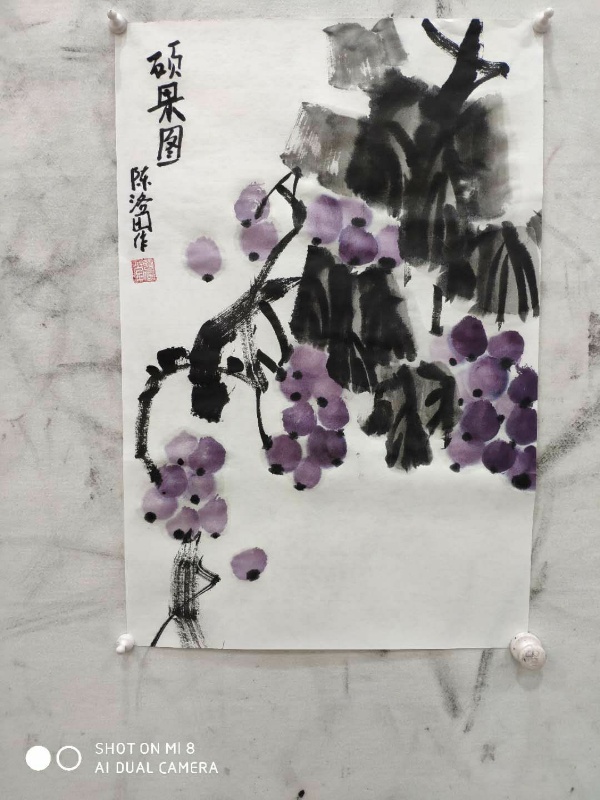 硕果图
陈澄田作
SHOT ON MI 8
AI DUAL CAMERA